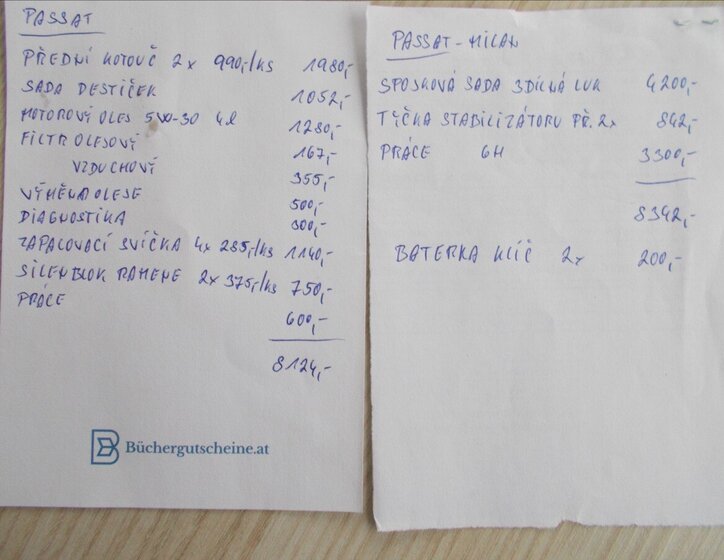 PASSAT
PŘEDNÍ KOTOUČ 2x 990,-/KS 1980,-
SADA DESTIČEK 1052,-
MOTOROVÝ OLEJ 5W-30 4l 1280,-
FILTR OLEJOVÝ 167,-
VZDUCHOVÝ 355,-
VÝMĚNA OLEJE 500,-
DIAGNOSTIKA 300,-
ZAPALOVACÍ SVÍČKA 4x 285,-/KS 1140,-
SILENBLOK RAMENE 2x 375,-/KS 750,-
PRÁCE 600,-
8124,-
Büchergutscheine.at
PASSAT - MILAN
SPOJKOVÁ SADA 3DÍLNÁ LUK 4200,-
TYČKA STABILIZÁTORU PŘ. 2x 842,-
PRÁCE 6H 3300,-
8342,-
BATERKA KLÍČ 2x 200,-